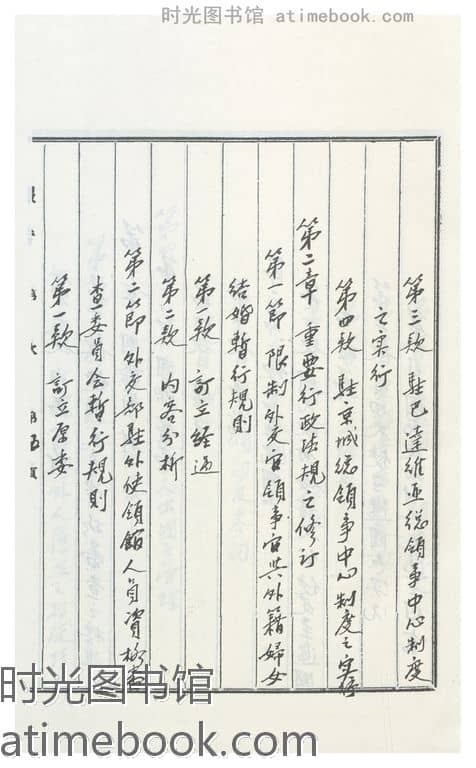 时光图书馆 atimebook.com
第三款 駐巴達維亞総領事中心制度
之实行
第四款 駐京城総領事中心制度之实行
第二章 重要行政法規之修订
第一節 限制外交官領事官與外籍婦女
结婚暫行規則
第一款 訂立经过
第二款 内容分析
第二節 外交部駐外使領館人员资格審
查委員会暫行規則
第一款 訂立原委
时光图书馆
atimebook.com